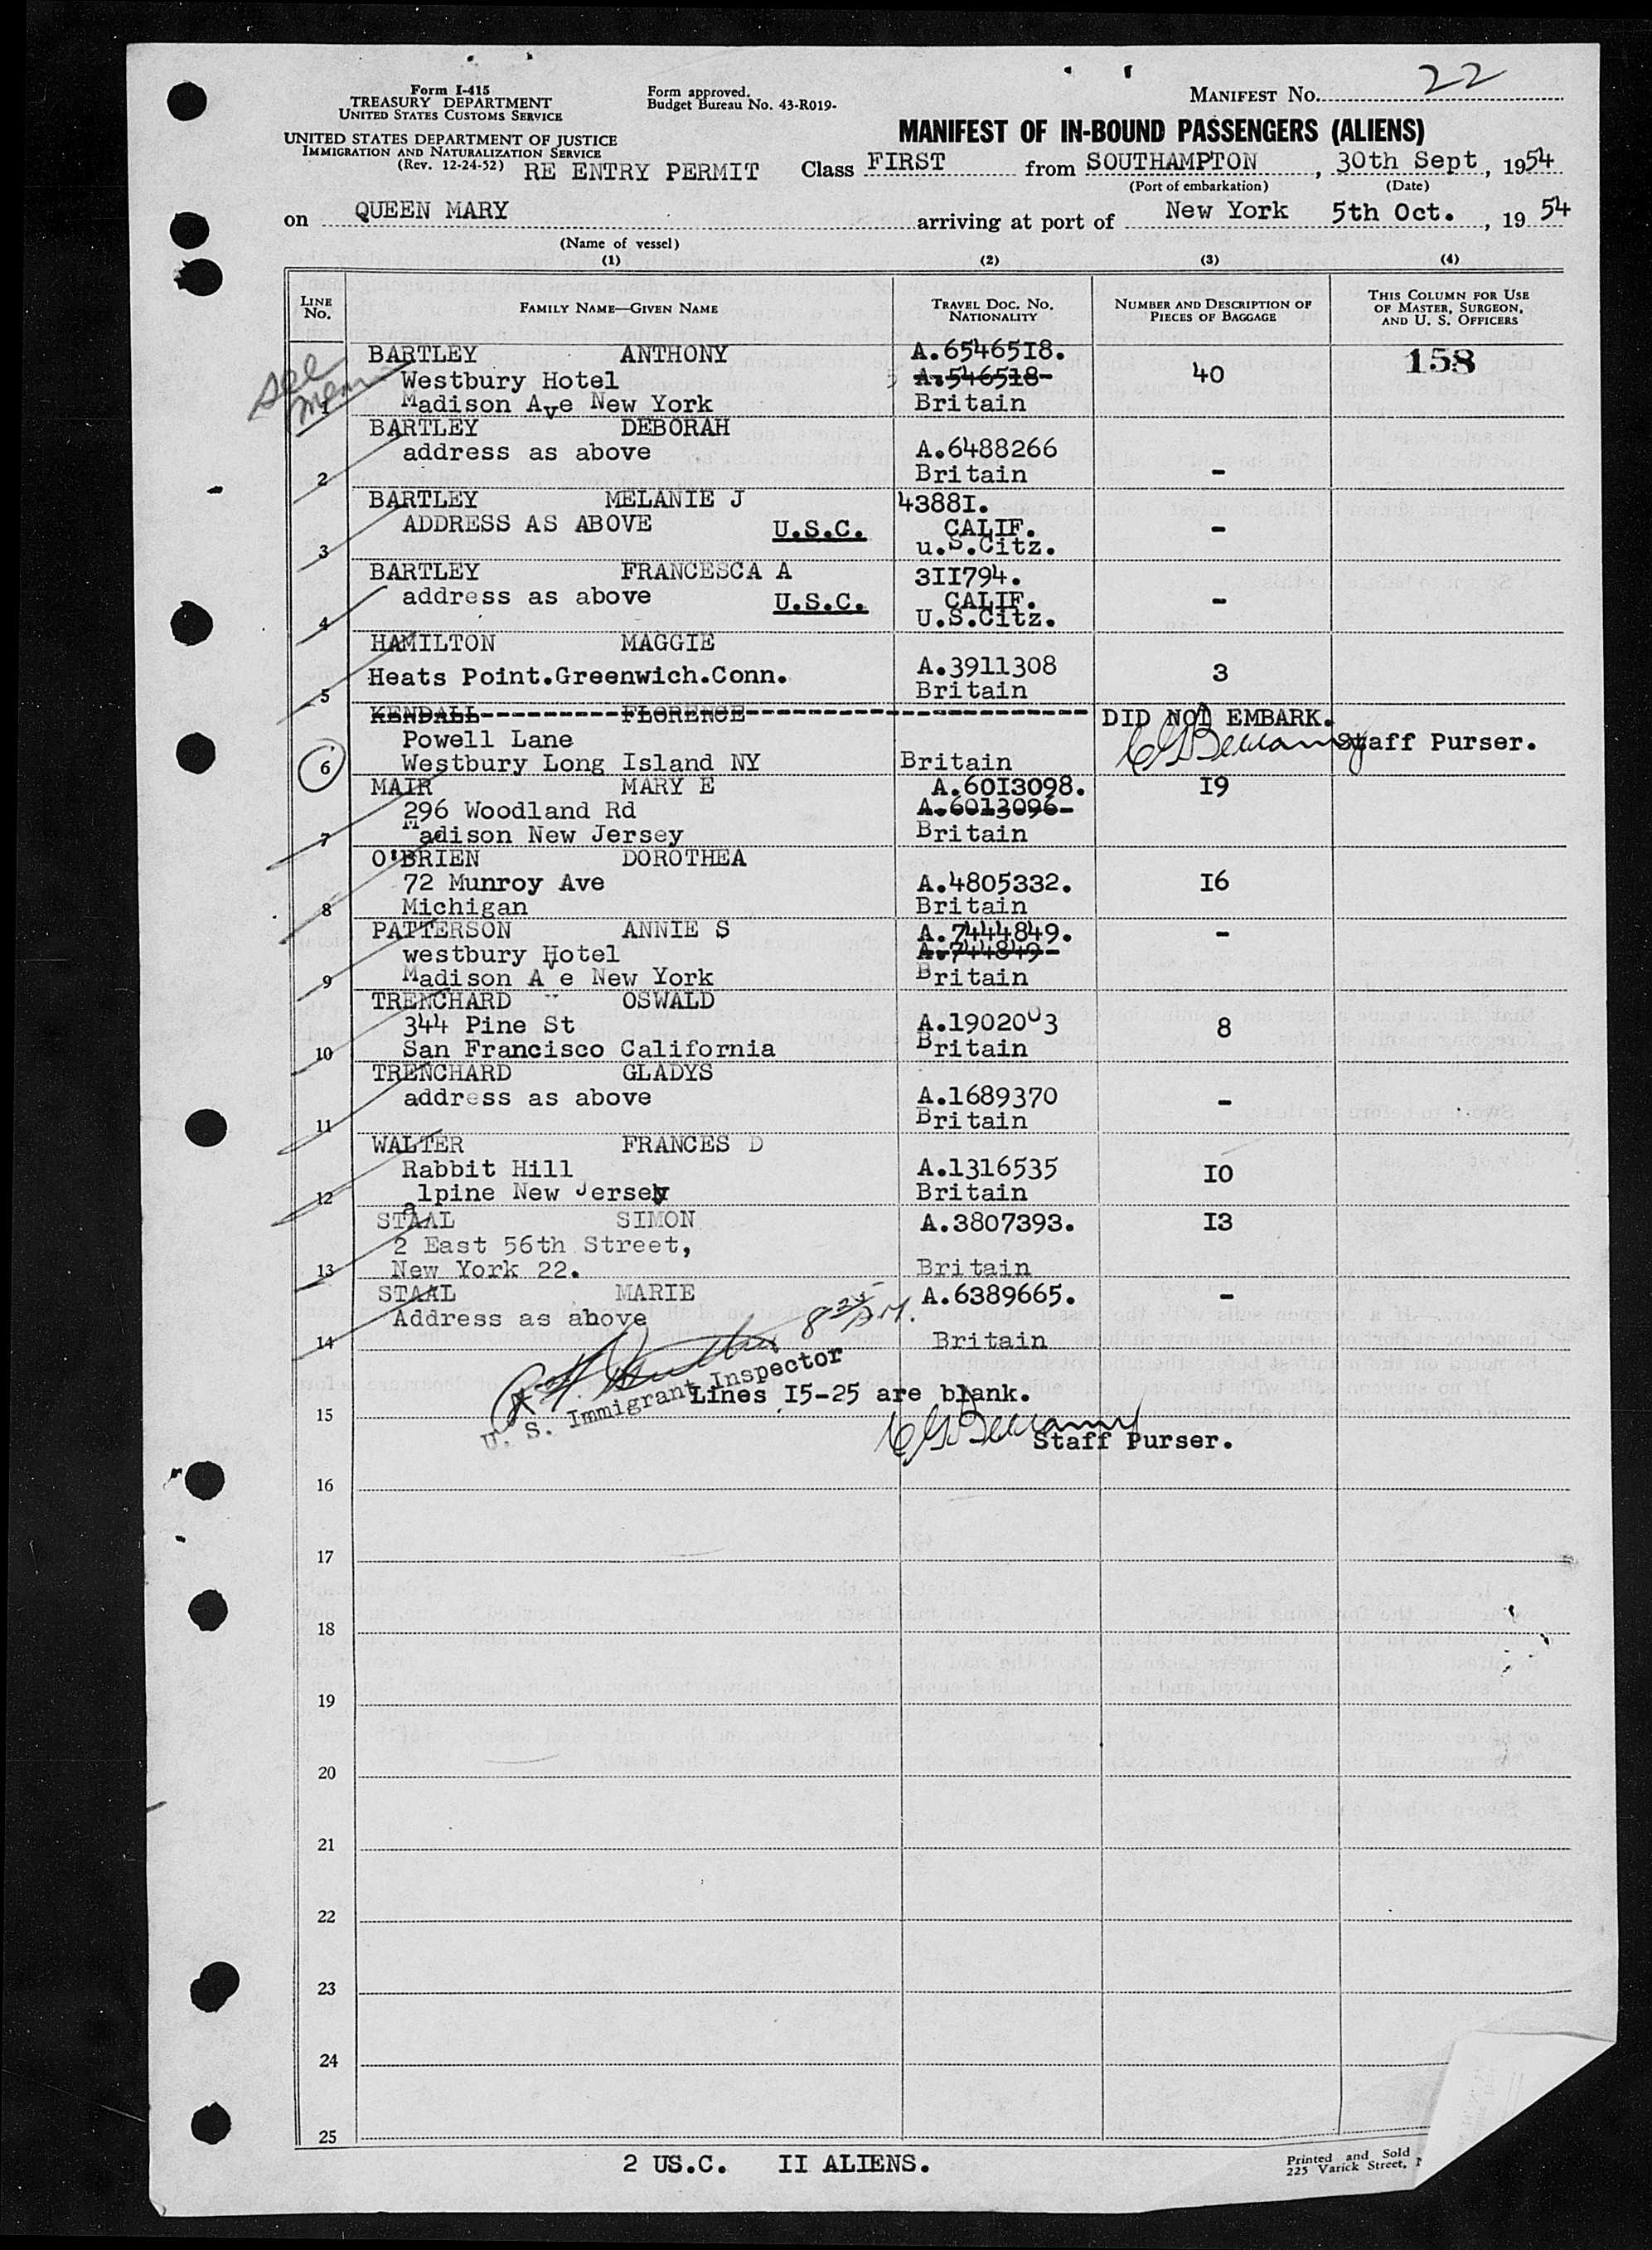 Form I-415
TREASURY DEPARTMENT
UNITED STATES CUSTOMS SERVICE
UNITED STATES DEPARTMENT OF JUSTICE
IMMIGRATION AND NATURALIZATION SERVICE
(Rev. 12-24-52) RE ENTRY PERMIT
Form approved.
Budget Bureau No. 43-R019-
MANIFEST NO. 22
MANIFEST OF IN-BOUND PASSENGERS (ALIENS)
Class FIRST from SOUTHAMPTON, 30th Sept, 1954
(Port of embarkation) (Date)
on QUEEN MARY arriving at port of New York 5th Oct., 1954
(Name of vessel)
(1) (2) (3) (4)
LINE NO. FAMILY NAME—GIVEN NAME TRAVEL DOC. NO. NATIONALITY NUMBER AND DESCRIPTION OF PIECES OF BAGGAGE THIS COLUMN FOR USE OF MASTER, SURGEON, AND U. S. OFFICERS
see
BARTLEY ANTHONY A.6546518. 158
Westbury Hotel A.546518- 40
1 Madison Ave New York Britain
BARTLEY DEBORAH
address as above A.6488266
2 Britain -
BARTLEY MELANIE J 43881.
ADDRESS AS ABOVE U.S.C. CALIF. -
3 u.S.Citz.
BARTLEY FRANCESCA A 311794.
address as above U.S.C. CALIF. -
4 U.S.Citz.
HAMILTON MAGGIE
Heats Point.Greenwich.Conn. A.3911308 3
5 Britain
KENDALL----------FLORENCE------------------------- DID NOT EMBARK.
Powell Lane Staff Purser.
6 Westbury Long Island NY Britain
MAIR MARY E A.6013098. 19
296 Woodland Rd A.6013096-
7 Madison New Jersey Britain
O'BRIEN DOROTHEA
72 Munroy Ave A.4805332. 16
8 Michigan Britain
PATTERSON ANNIE S A.7444849. -
westbury Hotel A.744849-
9 Madison Ave New York Britain
TRENCHARD OSWALD
344 Pine St A.1902003 8
10 San Francisco California Britain
TRENCHARD GLADYS
address as above A.1689370 -
11 Britain
WALTER FRANCES D
Rabbit Hill A.1316535 10
12 alpine New Jersey Britain
STAAL SIMON A.3807393. 13
2 East 56th Street,
13 New York 22. Britain
STAAL MARIE A.6389665. -
Address as above
14 Britain
U. S. Immigrant Inspector
Lines 15-25 are blank.
15
Staff Purser.
16
17
18
19
20
21
22
23
24
25
2 US.C. II ALIENS.
Printed and Sold
225 Varick Street,